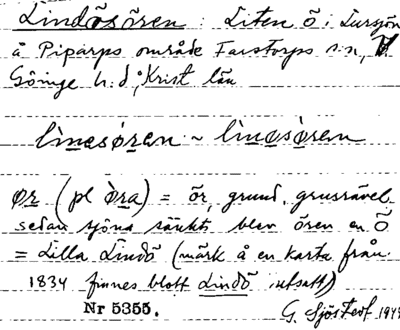 Lindösören : Liten ö i Lursjön
å Piparps område Farstorps s:n, V.
Göinge h.d, Krist län
lìnesø̀ren ~ lìnøsø̀ren
ør (pl ø̀ra) = ör, grund, grusrävel.
sedan sjöna sänkts blev ören en ö
= Lilla Lindö (märk å en karta från
1834 finnes blott Lindö utsatt)
Nr 5355. G. Sjöstedt